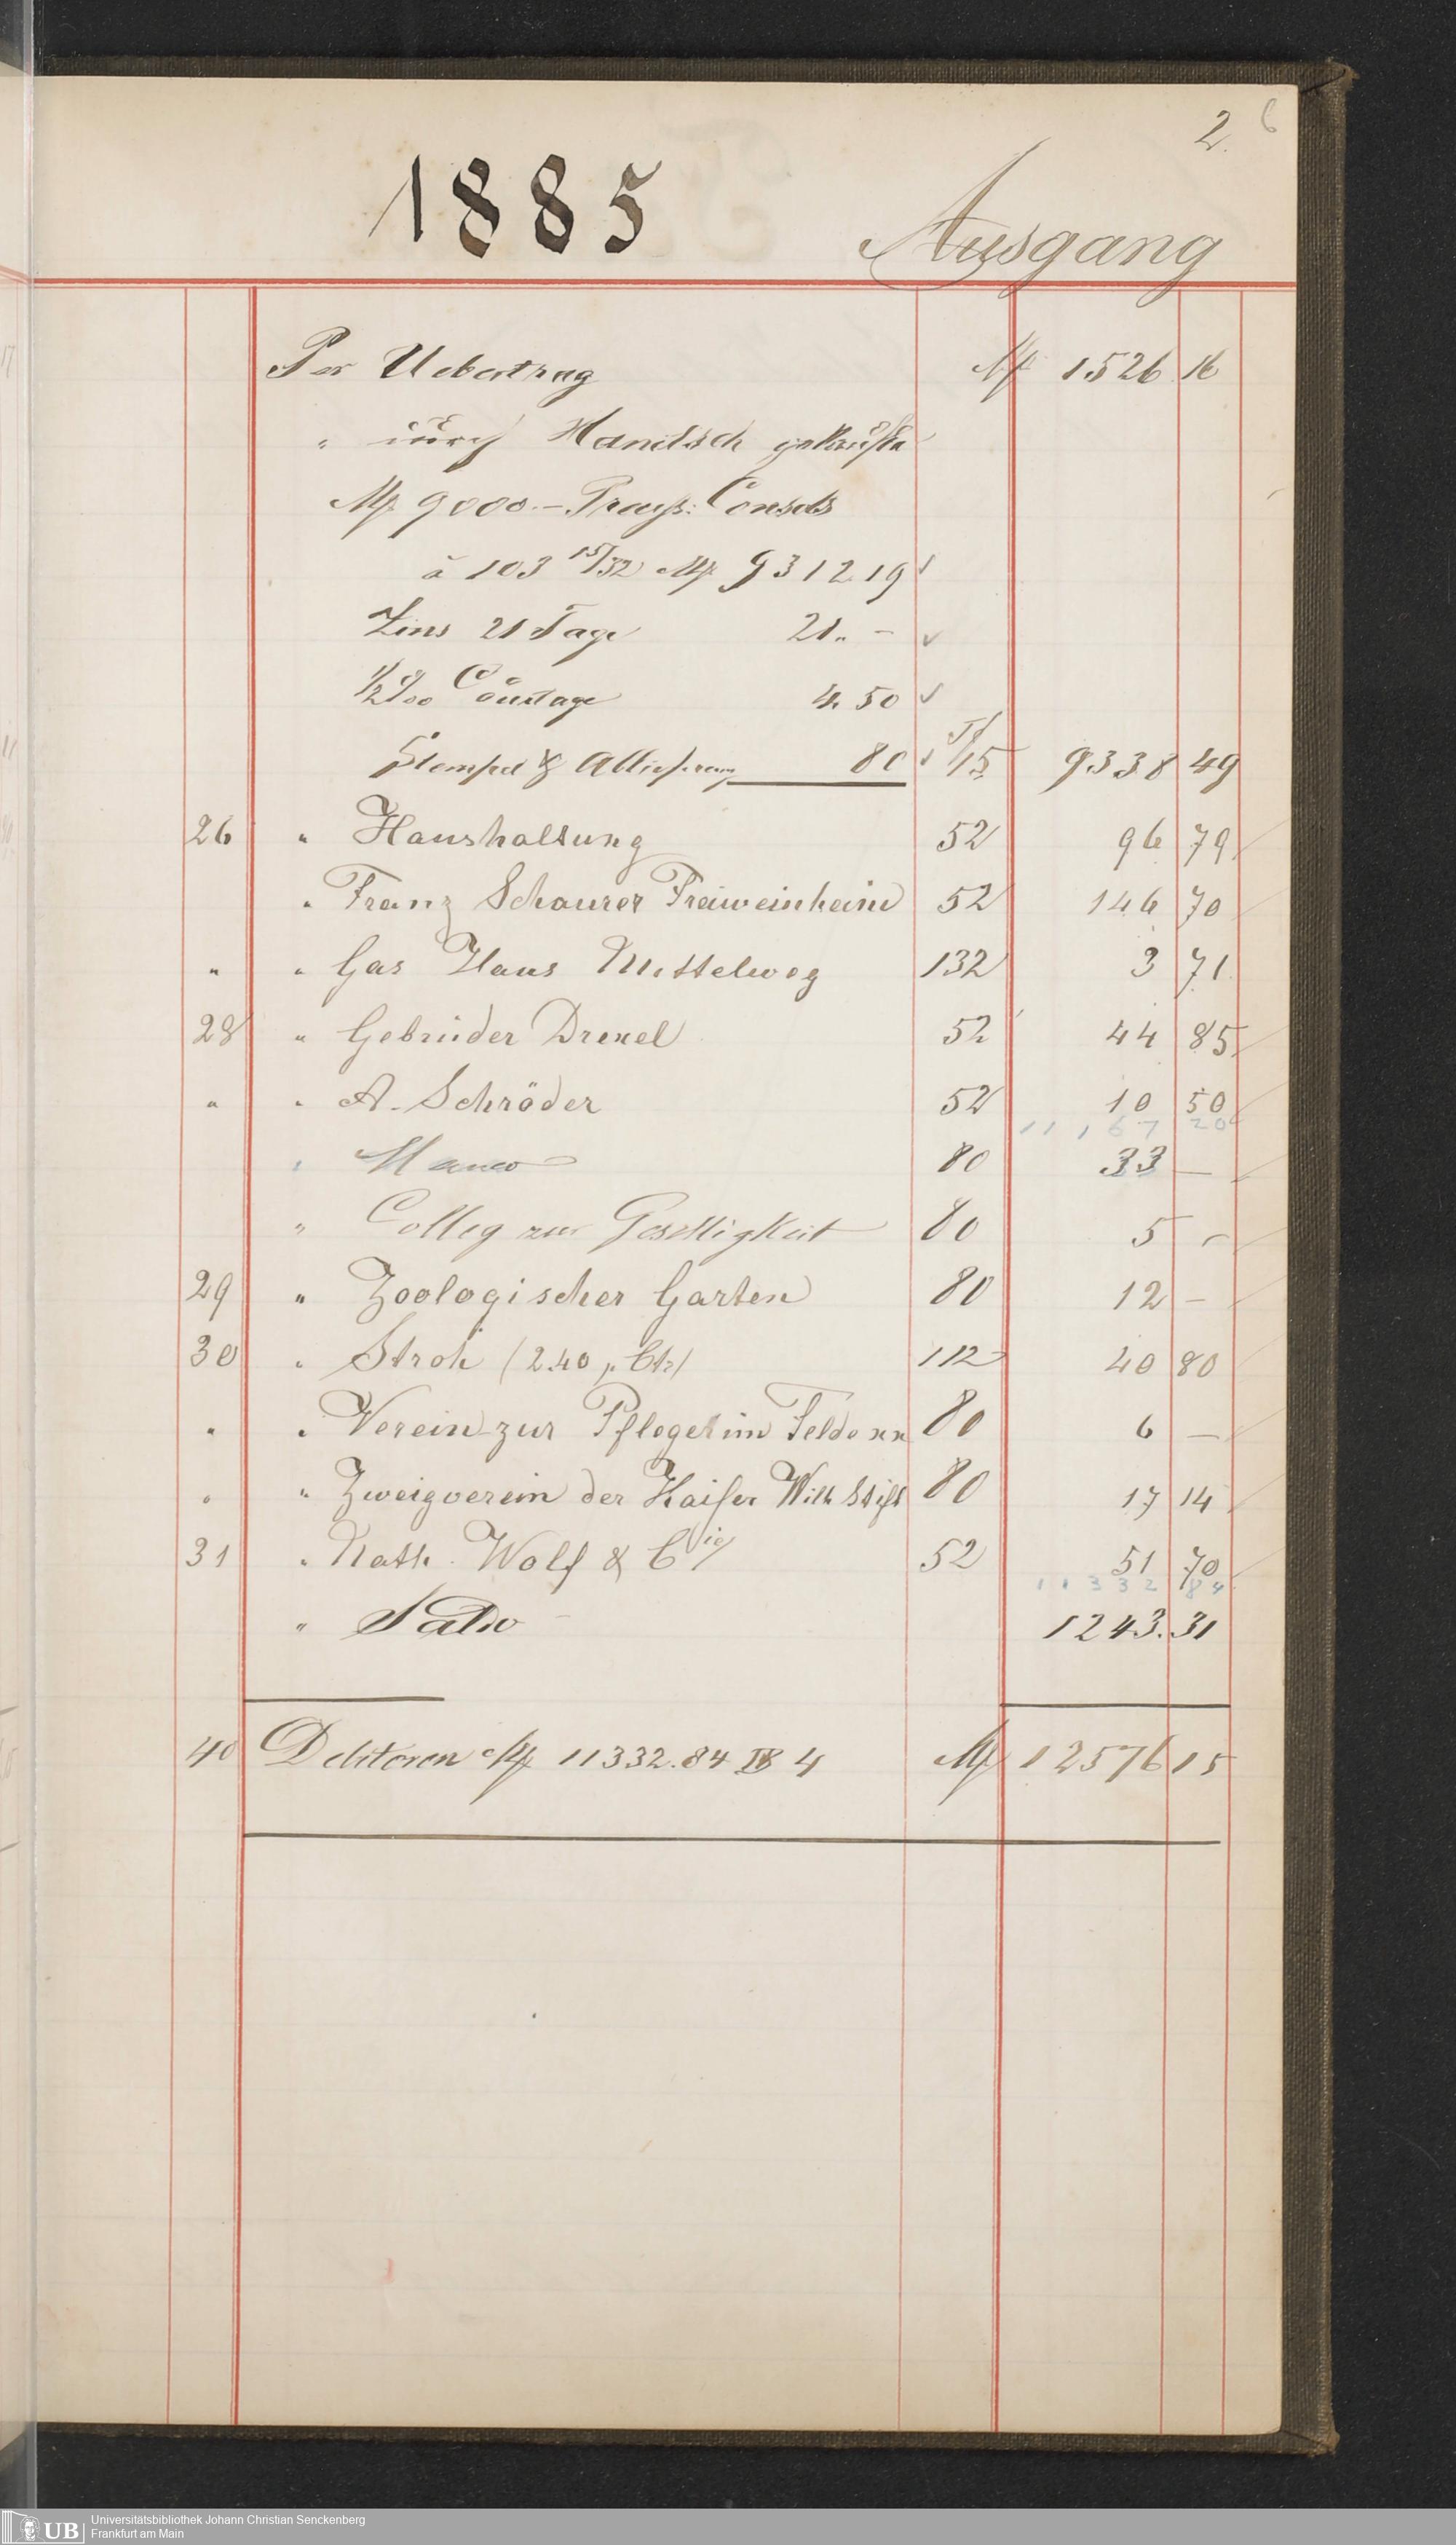 2. 6
1885 Ausgang
Per Uebertrag M 1526 16
" durch Handisch gekaufte
M 9000.– Preuss: Consols
à 103 15/32 M 9312 19
Zins 21 Tage 21.. –
1/2 ‰ Courtage 4. 50
Stempel & Ablieferung 80 15 9338 49
26 " Haushaltung 52 96 79
" Franz Schaurer Freiweinheim 52 146 70
" " Gas Haus Mittelweg 132 3 71
28 " Gebrüder Drexel 52 44 85
" " A. Schröder 52 10 50
11,167 20
" Manco 80 33 —
" Colleg zur Geselligkeit 80 5 –
29 " Zoologischer Garten 80 12 –
30 " Stroh (2.40 p. Ctr) 112 40 80
" " Verein zur Pflege 80 6 —
" " Zweigverein der Kaiser Wilh Stift 80 17 14
31 " Nath. Wolf & Cie 52 51 70
11332 84
" Saldo 1243. 31
40 Debitoren M 11332. 84 4 M 12576 15
Universitätsbibliothek Johann Christian Senckenberg
UB Frankfurt am Main